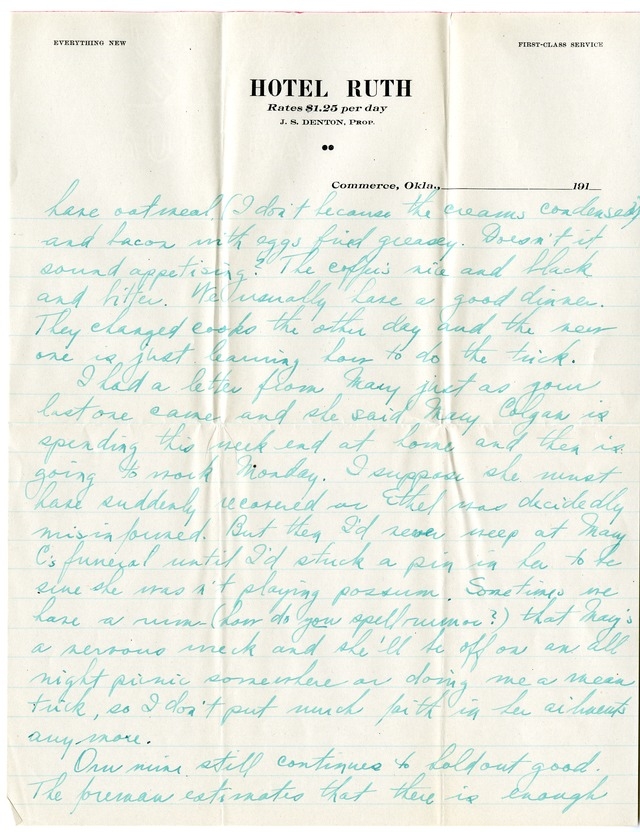 EVERYTHING NEW
FIRST-CLASS SERVICE
HOTEL RUTH
Rates $1.25 per day
J. S. DENTON, PROP.
Commerce, Okla., 191
have oatmeal (I don't because the creams condensed)
and bacon with eggs fried greasey. Doesn't it
sound appetising? The coffee's nice and black
and bitter. We usually have a good dinner.
They changed cooks the other day and the new
one is just learning how to do the trick.
I had a letter from Mary just as your
last one came and she said Mary Colgan is
spending this week end at home and then is
going to work Monday. I suppose she must
have suddenly recovered or Ethel was decidedly
misinformed. But then I'd never weep at Mary
C's funeral until I'd stuck a pin in her to be
sure she wasn't playing possum. Sometimes we
have a rum- (how do you spell rumor?) that Mary's
a nervous wreck and she'll be off on an all
night picnic somewhere or doing me a mean
trick, so I don't put much faith in her ailments
any more.
Our mine still continues to hold out good.
The foreman estimates that there is enough